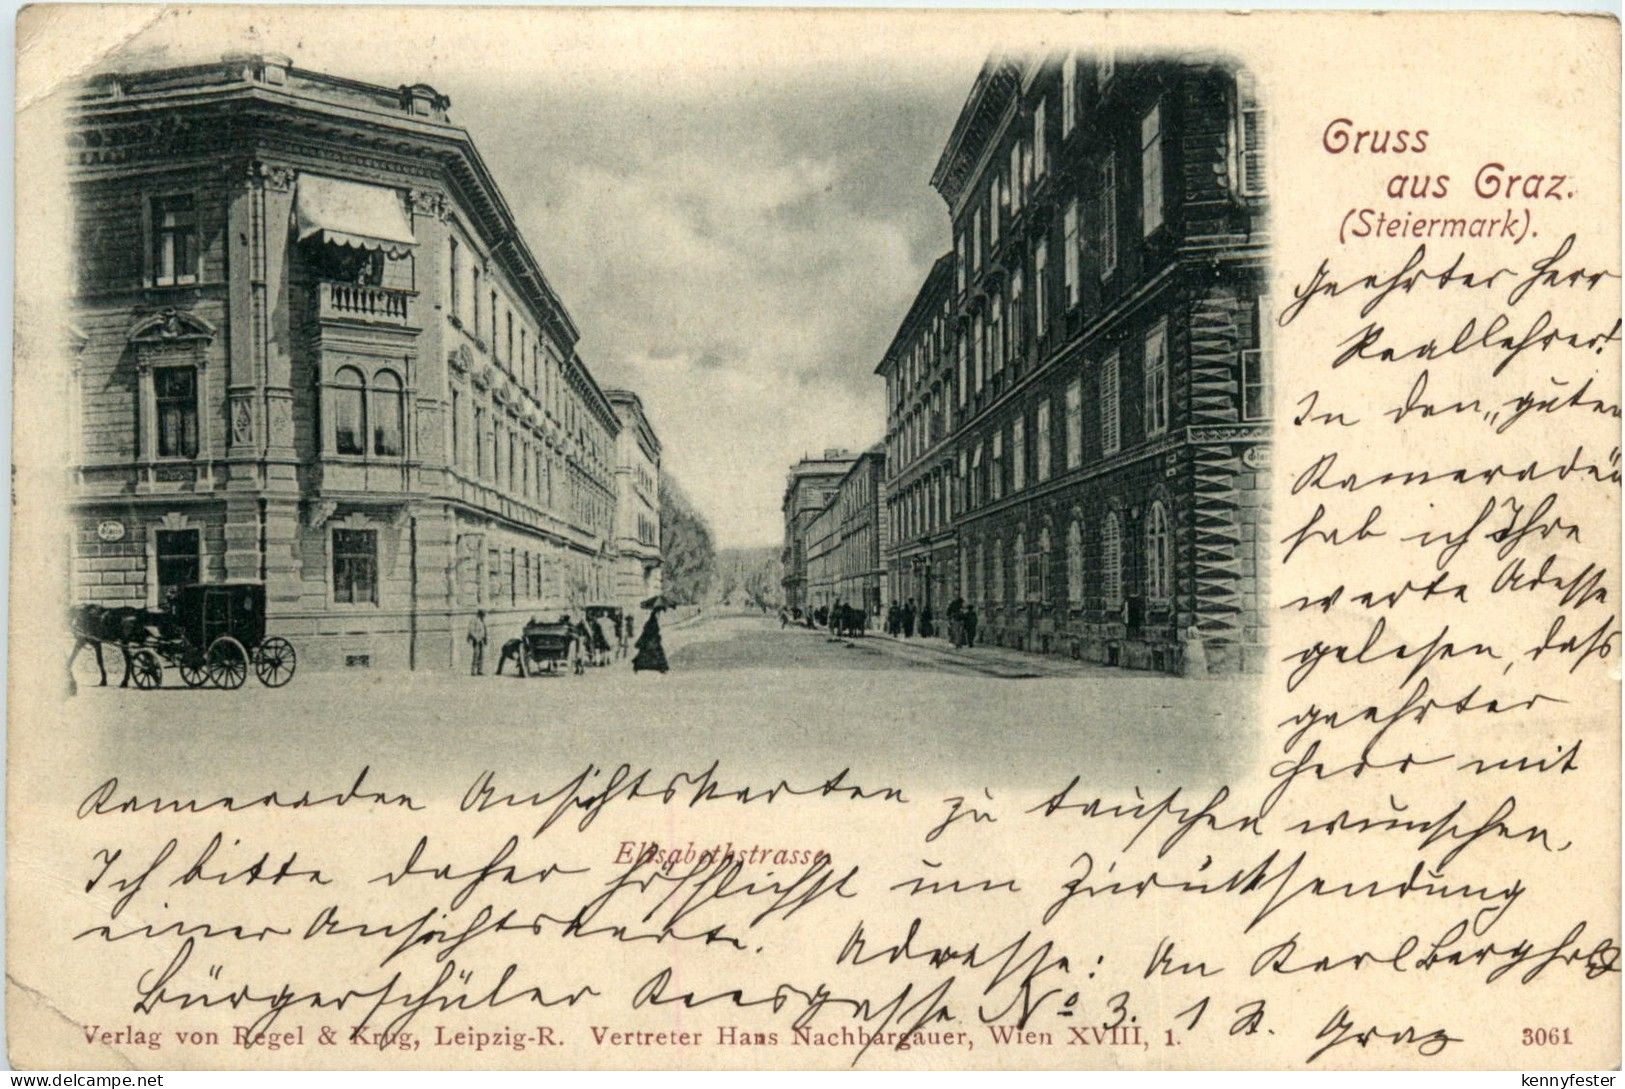 Gruss
aus Graz.
(Steiermark).
Geehrter Herr
Reallehrer!
In den „guten
Kameraden"
hab ich Ihre
werte Adesse
gelesen, dass
geehrter
Herr mit
Kameraden Ansichtskarten zu tauschen wünschen.
Elisabethstrasse
Ich bitte daher höfflichst um Zurücksendung
einer Ansichtskarte. Adresse: An Karl Berghold
Bürgerschüler Keesgasse No 3. 1 St. Graz
Verlag von Regel & Krug, Leipzig-R. Vertreter Hans Nachbargauer, Wien XVIII, 1.
3061
delcampe.net
kennyfester